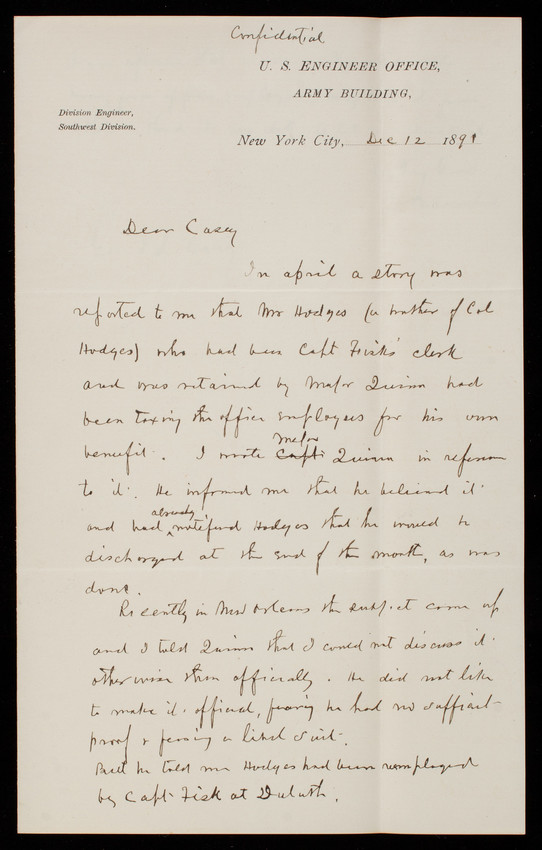 Confidential
U. S. ENGINEER OFFICE,
ARMY BUILDING,
Division Engineer,
Southwest Division.
New York City, Dec 12 1891
Dear Casey
In april a story was
reported to me that Mr Hodges (a brother of Col
Hodges) who had been Capt Fisks' clerk
and was retained by Major Quinn had
been taxing the office employees for his own
benefit. I wrote Capt Major Quinn in reference
to it. He informed me that he believed it
and had already notified Hodges that he would be
discharged at the end of the month, as was
done.
Recently in New Orleans the subject came up
and I told Quinn that I could not discuss it
otherwise than officially. He did not like
to make it official, fearing he had no sufficient
proof & fearing a libel suit.
But he told me Hodges had been reemployed
by Capt Fisk at Duluth.